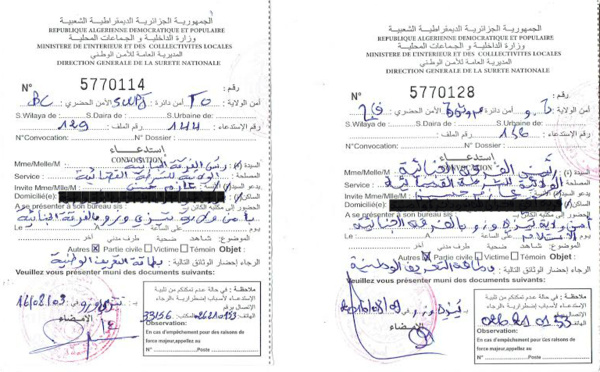 الجمهورية الجزائرية الديمقراطية الشعبية
REPUBLIQUE ALGERIENNE DEMOCRATIQUE ET POPULAIRE
وزارة الداخلية و الجماعات المحلية
MINISTERE DE L'INTERIEUR ET DES COLLECTIVITES LOCALES
المديرية العامة للأمن الوطني
DIRECTION GENERALE DE LA SURETE NATIONALE
N° 5770114 رقم :
أمن الولاية : TO أمن دائرة : SWPJ أمن الحضري : BC
S.Wilaya de: S.Daira de: S.Urbaine de:
رقم الإستدعاء : 144 رقم الملف : 129
N°Convocation: N° Dossier:
إستدعاء
CONVOCATION
Mme/Melle/M السيدة (x) رئيس الفرقة الجنائية
Service : المصلحة الولائية للشرطة القضائية
Invite Mme/Melle/M يدعو السيد (x)
Domicilié(e) :
A se présenter à son bureau sis إلى مكتبه الكائن
بأمن ولاية تيزي وزو بالفرقة الجنائية
الموضوع : شاهد طرف مدني آخر
Autres X Partie civile Victime Témoin Objet :
الرجاء إحضار الوثائق التالية : بطاقة التعريف الوطنية
Veuillez vous présenter muni des documents suivants:
16/08/09
تيزي وزو
الإمضاء
ملاحظة : في حالة عدم تمكنكم من تلبية
الإستدعاء لأسباب إضطرارية الرجاء
الإتصال برقم
الهاتف
Observation:
En cas d'empéchement pour des raisons de
force majeur,appellez au
N° Poste
الجمهورية الجزائرية الديمقراطية الشعبية
REPUBLIQUE ALGERIENNE DEMOCRATIQUE ET POPULAIRE
وزارة الداخلية و الجماعات المحلية
MINISTERE DE L'INTERIEUR ET DES COLLECTIVITES LOCALES
المديرية العامة للأمن الوطني
DIRECTION GENERALE DE LA SURETE NATIONALE
N° 5770128 رقم :
أمن الولاية : أمن دائرة : أمن الحضري :
S.Wilaya de: S.Daira de: S.Urbaine de:
رقم الإستدعاء : 156 رقم الملف :
N°Convocation: N° Dossier:
إستدعاء
CONVOCATION
Mme/Melle/M السيدة (x) رئيس الفرقة الجنائية
Service : المصلحة الولائية للشرطة القضائية
Invite Mme/Melle/M يدعو السيد (x)
Domicilié(e) :
A se présenter à son bureau sis إلى مكتبه الكائن
أمن ولاية تيزي وزو بالفرقة الجنائية
الموضوع : شاهد طرف مدني آخر
Autres X Partie civile Victime Témoin Objet :
الرجاء إحضار الوثائق التالية : بطاقة التعريف الوطنية
Veuillez vous présenter muni des documents suivants:
تيزي وزو
الإمضاء
ملاحظة : في حالة عدم تمكنكم من تلبية
الإستدعاء لأسباب إضطرارية الرجاء
الإتصال برقم
الهاتف
026 21 01 53
Observation:
En cas d'empéchement pour des raisons de
force majeur,appellez au
N° Poste